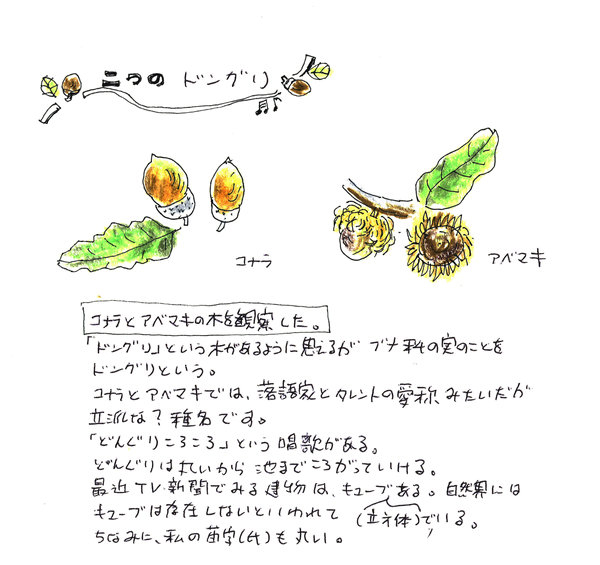 二つの ドングリ
コナラ
アベマキ
コナラとアベマキの木を観察した。
「ドングリ」という木があるように思えるが ブナ科の実のことを
ドングリという。
コナラとアベマキでは、落語家とタレントの愛称みたいだが
立派な?種名です。
「どんぐりころころ」という唱歌がある。
どんぐりは丸いから 池までころがっていける。
最近TV・新聞でみる建物は、キューブである。自然界には
キューブは存在しないといわれている。
(立方体)
ちなみに、私の苗字(氏)も丸い。